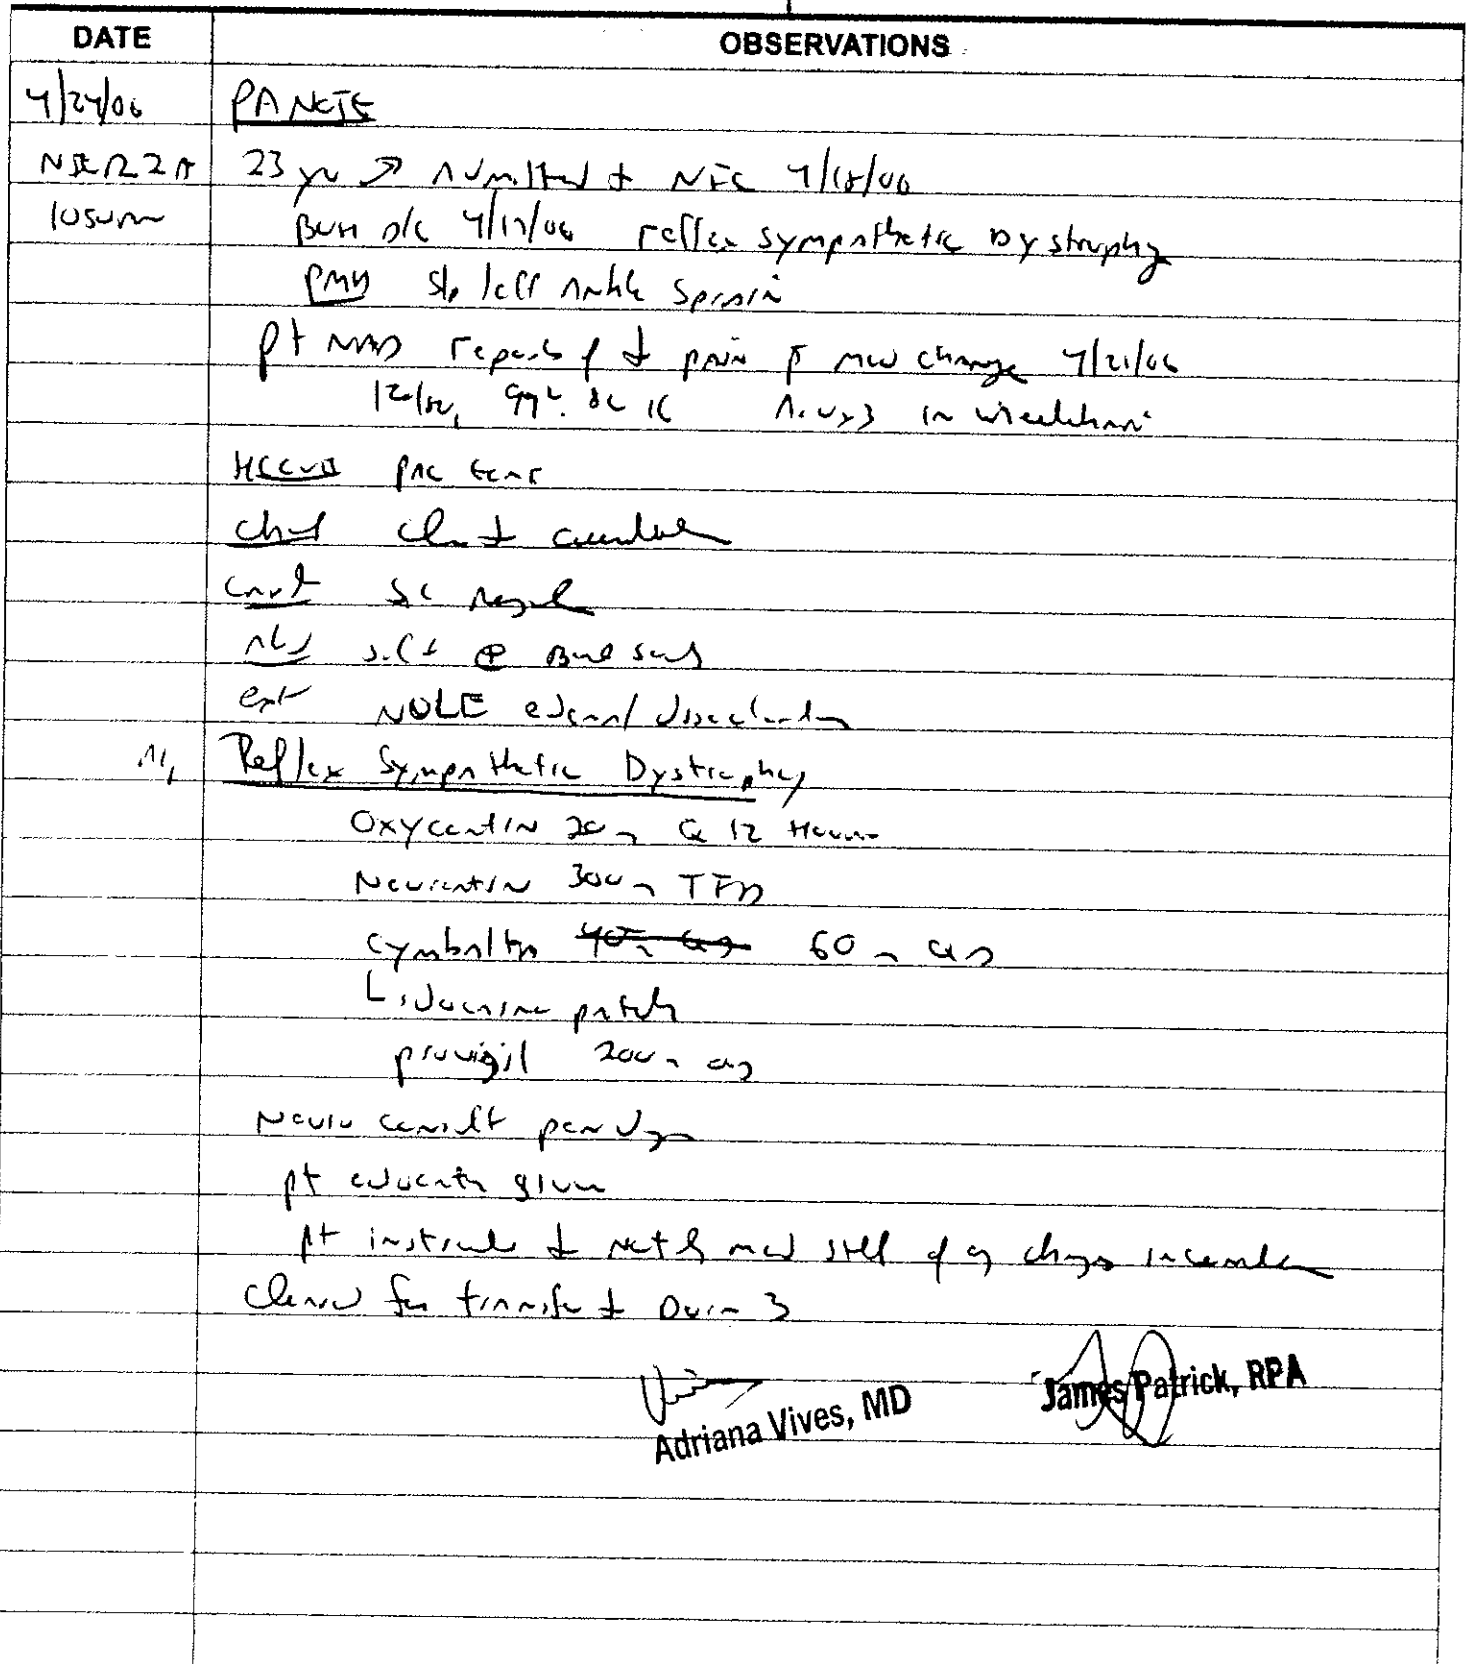 DATE OBSERVATIONS
4/24/06 PA NOTE
23 yo ♂ Admitted to NIC 4/18/06
1050am BUH D/C 4/17/06 reflex sympathetic Dystrophy
PMH S/p left Ankle Sprain
pt NAD reports ↓ pain p med change 4/21/06
in wheelchair
HEENT
chest Clear to auscultate
Card
Abd soft ⊕ Bowel sounds
ext edema/
Reflex Sympathetic Dystrophy
Oxycontin 20m Q 12 Hours
Neurontin 300m TID
cymbalta 60m QD
Lidocaine patch
provigil 200m QD
Neuro consult pending
pt education given
pt instructed to notify med staff if any changes in condition
Cleared for transfer to Dorm 3
Adriana Vives, MD James Patrick, RPA